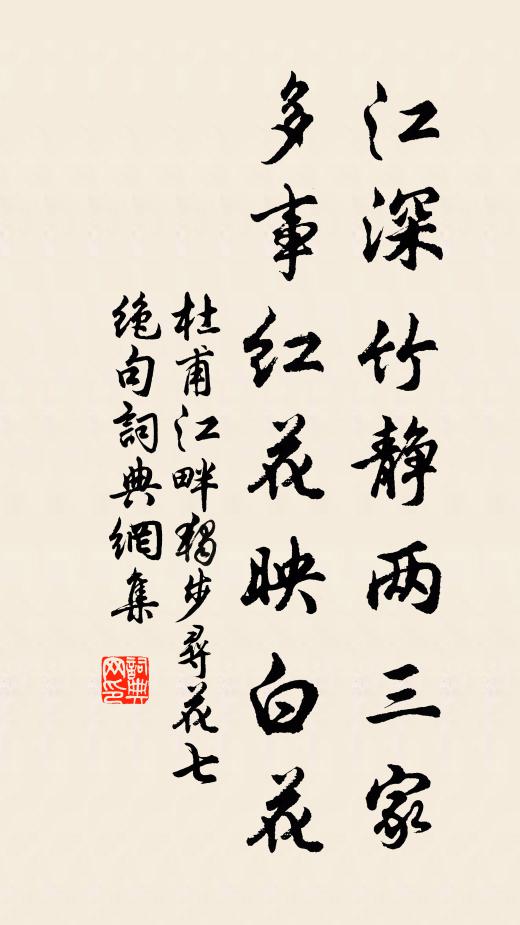 江深竹静两三家
多事红花映白花
杜甫江畔獨步尋花七
絕句詞典網集
詞典
网印